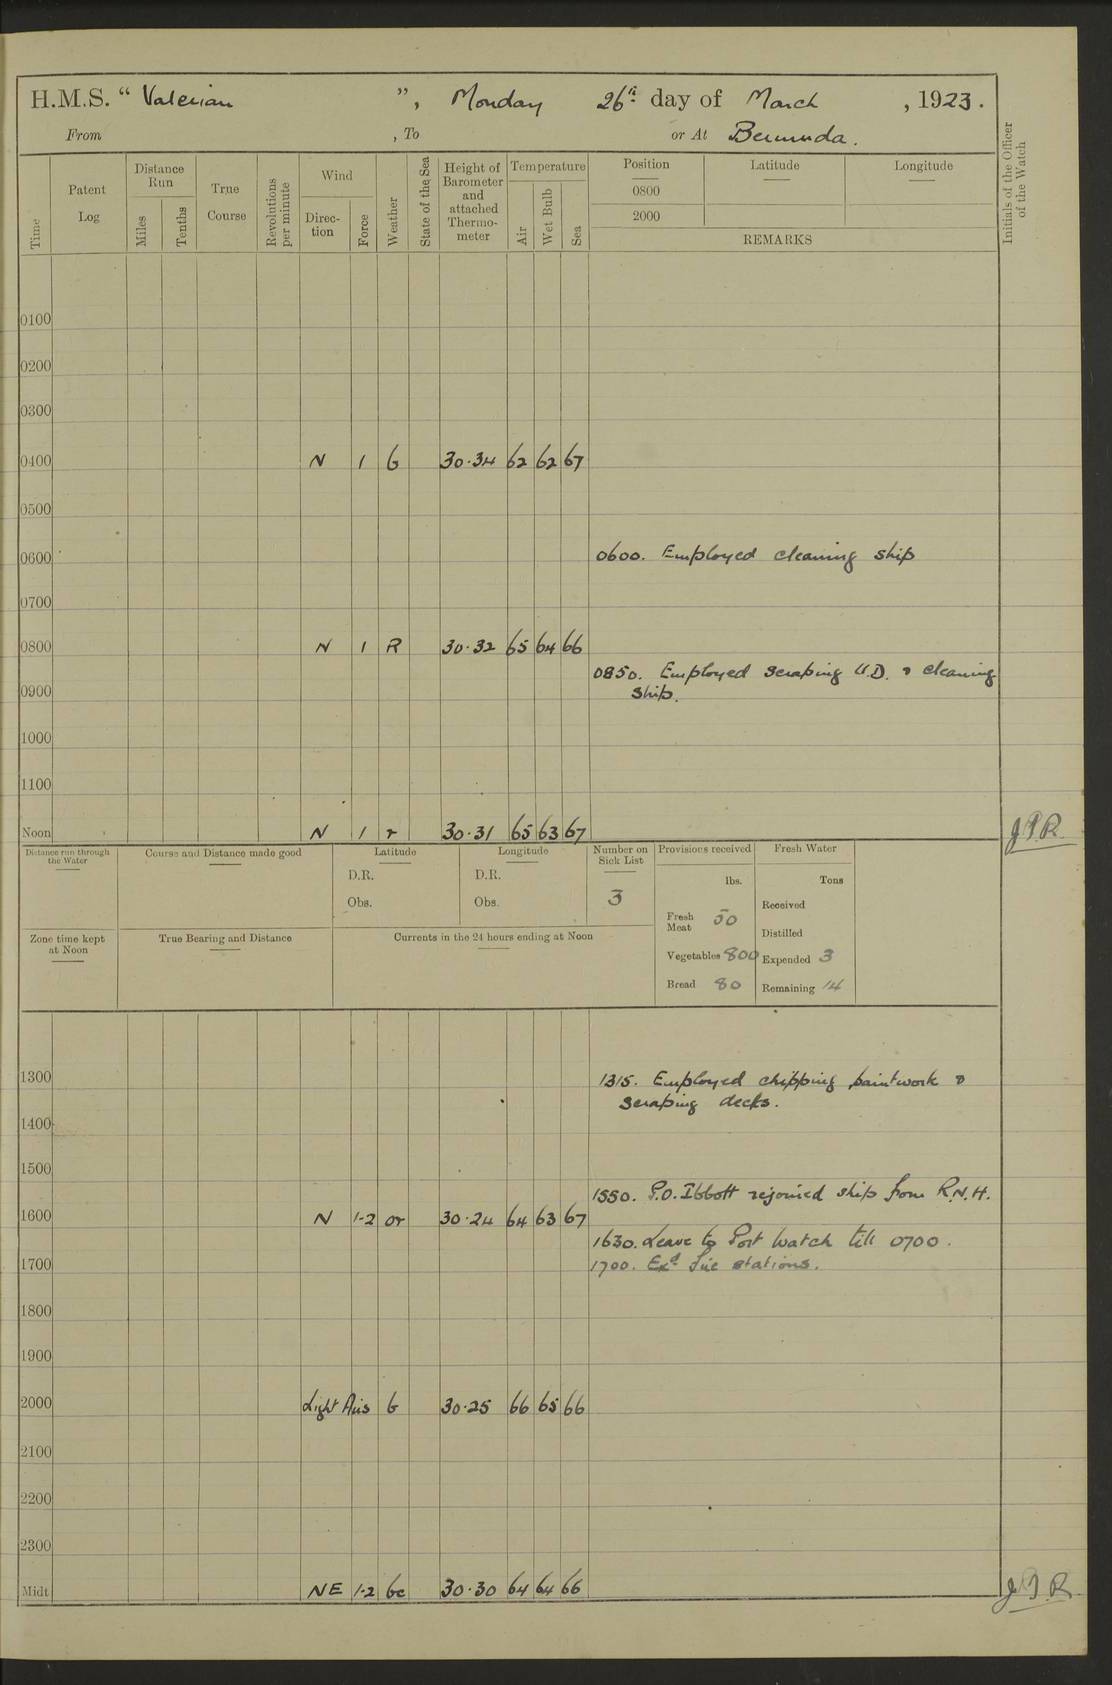 H.M.S. “ Valerian ”, Monday 26th day of March , 1923.
From , To or At Bermuda.
Time
Patent Log
Distance Run
Miles
Tenths
True Course
Revolutions per minute
Wind
Direc- tion
Force
Weather
State of the Sea
Height of Barometer and attached Thermo- meter
Temperature
Air
Wet Bulb
Sea
Position
Latitude
Longitude
0800
2000
REMARKS
Initials of the Officer of the Watch
0100
0200
0300
0400 N 1 b 30.34 62 62 67
0500
0600 0600. Employed cleaning ship
0700
0800 N 1 R 30.32 65 64 66
0850. Employed scraping U.D. & cleaning
ship.
0900
1000
1100
Noon N 1 r 30.31 65 63 67
Distance run through the Water
Course and Distance made good
Latitude
D.R.
Obs.
Longitude
D.R.
Obs.
Number on Sick List
3
Provisions received
lbs.
Fresh Meat 50
Vegetables 800
Bread 80
Fresh Water
Tons
Received
Distilled
Expended 3
Remaining 14
Zone time kept at Noon
True Bearing and Distance
Currents in the 24 hours ending at Noon
1300 1315. Employed chipping paintwork &
scraping decks.
1400
1500
1550. P.O. Ibbott rejoined ship from R.N.H.
1600 N 1-2 or 30.24 64 63 67
1630. Leave to Port Watch till 0700.
1700 1700. Exd. Fire stations.
1800
1900
2000 Light Airs b 30.25 66 65 66
2100
2200
2300
Midt NE 1-2 bc 30.30 64 64 66